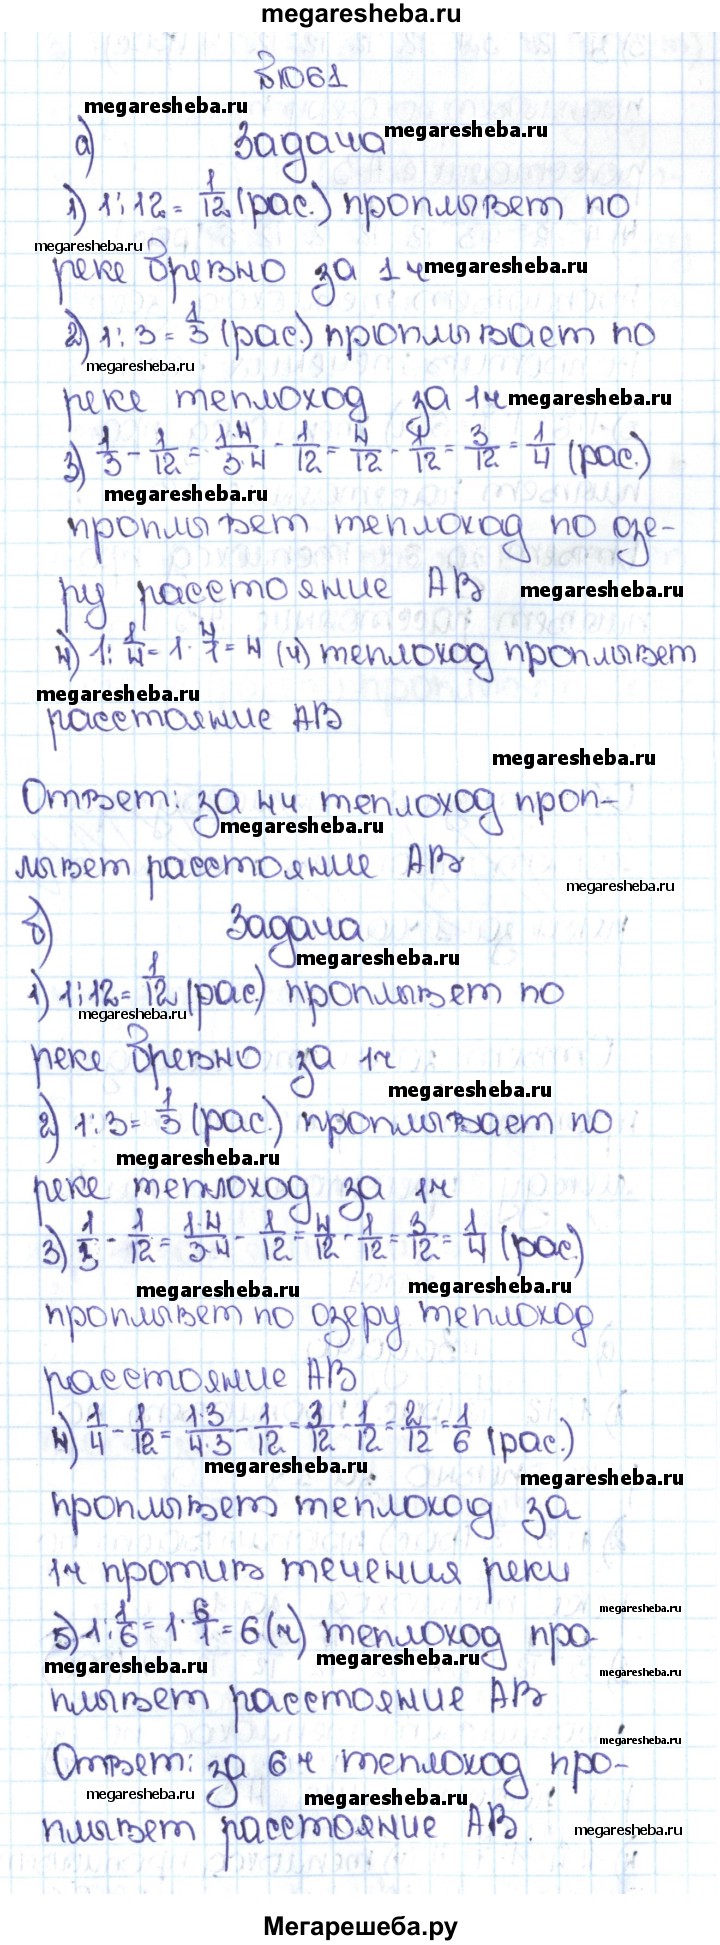 megaresheba.ru
№1061
megaresheba.ru
а) Задача megaresheba.ru
1) 1:12 = 1/12 (рас.) проплывет по
megaresheba.ru
реке бревно за 1ч megaresheba.ru
2) 1:3 = 1/3 (рас.) проплывает по
megaresheba.ru
реке теплоход за 1ч megaresheba.ru
3) 1/3 - 1/12 = 1·4/3·4 - 1/12 = 4/12 - 1/12 = 3/12 = 1/4 (рас.)
megaresheba.ru
проплывет теплоход по озе-
ру расстояние АВ megaresheba.ru
4) 1: 1/4 = 1· 4/1 = 4 (ч) теплоход проплывет
megaresheba.ru
расстояние АВ
megaresheba.ru
Ответ: за 4ч теплоход проп-
megaresheba.ru
лывет расстояние АВ
megaresheba.ru
б) Задача
megaresheba.ru
1) 1:12 = 1/12 (рас.) проплывет по
megaresheba.ru
реке бревно за 1ч
megaresheba.ru
2) 1:3 = 1/3 (рас.) проплывает по
megaresheba.ru
реке теплоход за 1ч
3) 1/3 - 1/12 = 1·4/3·4 - 1/12 = 4/12 - 1/12 = 3/12 = 1/4 (рас.)
megaresheba.ru megaresheba.ru
проплывет по озеру теплоход
расстояние АВ
4) 1/4 - 1/12 = 1·3/4·3 - 1/12 = 3/12 - 1/12 = 2/12 = 1/6 (рас.)
megaresheba.ru
megaresheba.ru
проплывет теплоход за
1ч против течения реки
megaresheba.ru
5) 1: 1/6 = 1· 6/1 = 6 (ч) теплоход про
megaresheba.ru megaresheba.ru megaresheba.ru
плывет расстояние АВ
megaresheba.ru
Ответ: за 6ч теплоход про-
megaresheba.ru megaresheba.ru
плывет расстояние АВ. megaresheba.ru
Мегарешеба.ру